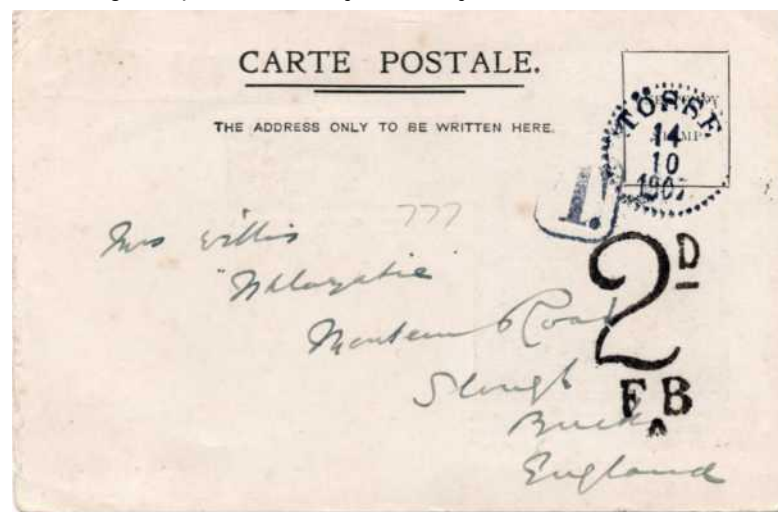 CARTE POSTALE.
THE ADDRESS ONLY TO BE WRITTEN HERE.
TÖSSE
14
10
1907
T.
777
Mrs Willis
Montem Road
Slough
Bucks
England
2D
FB